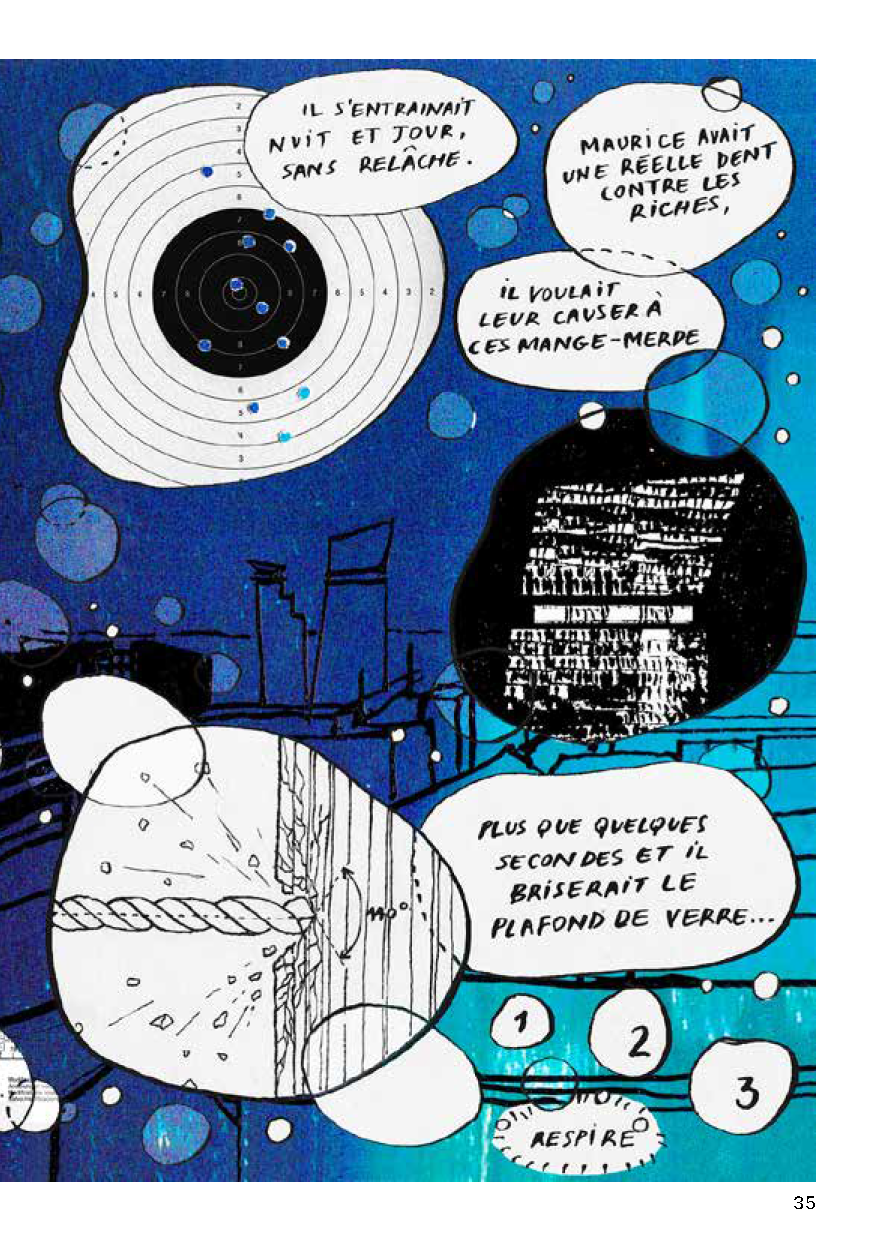 IL S'ENTRAINAIT
NUIT ET JOUR,
SANS RELÂCHE.
MAURICE AVAIT
UNE RÉELLE DENT
CONTRE LES
RICHES,
IL VOULAIT
LEUR CAUSER À
CES MANGE-MERDE
2
3
4
5
6
7
8
4 5 6 7 8
8 7 6 5 4 3 2
8
7
6
5
4
3
110°
PLUS QUE QUELQUES
SECONDES ET IL
BRISERAIT LE
PLAFOND DE VERRE...
1
2
3
RESPIRE
35